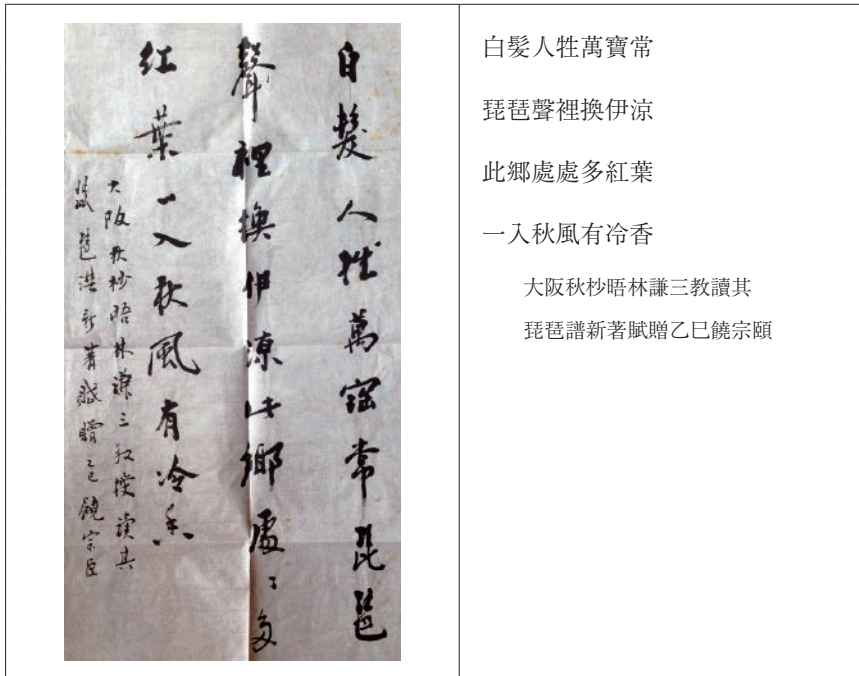 白髮人牲萬寶常琵琶
聲裡換伊涼此鄉處〻多
紅葉一入秋風有冷香
大阪秋杪晤林謙三教授讀其
琵琶譜新著賦贈乙巳饒宗頤
白髮人牲萬寶常
琵琶聲裡換伊涼
此鄉處處多紅葉
一入秋風有冷香
大阪秋杪晤林謙三教讀其
琵琶譜新著賦贈乙巳饒宗頤